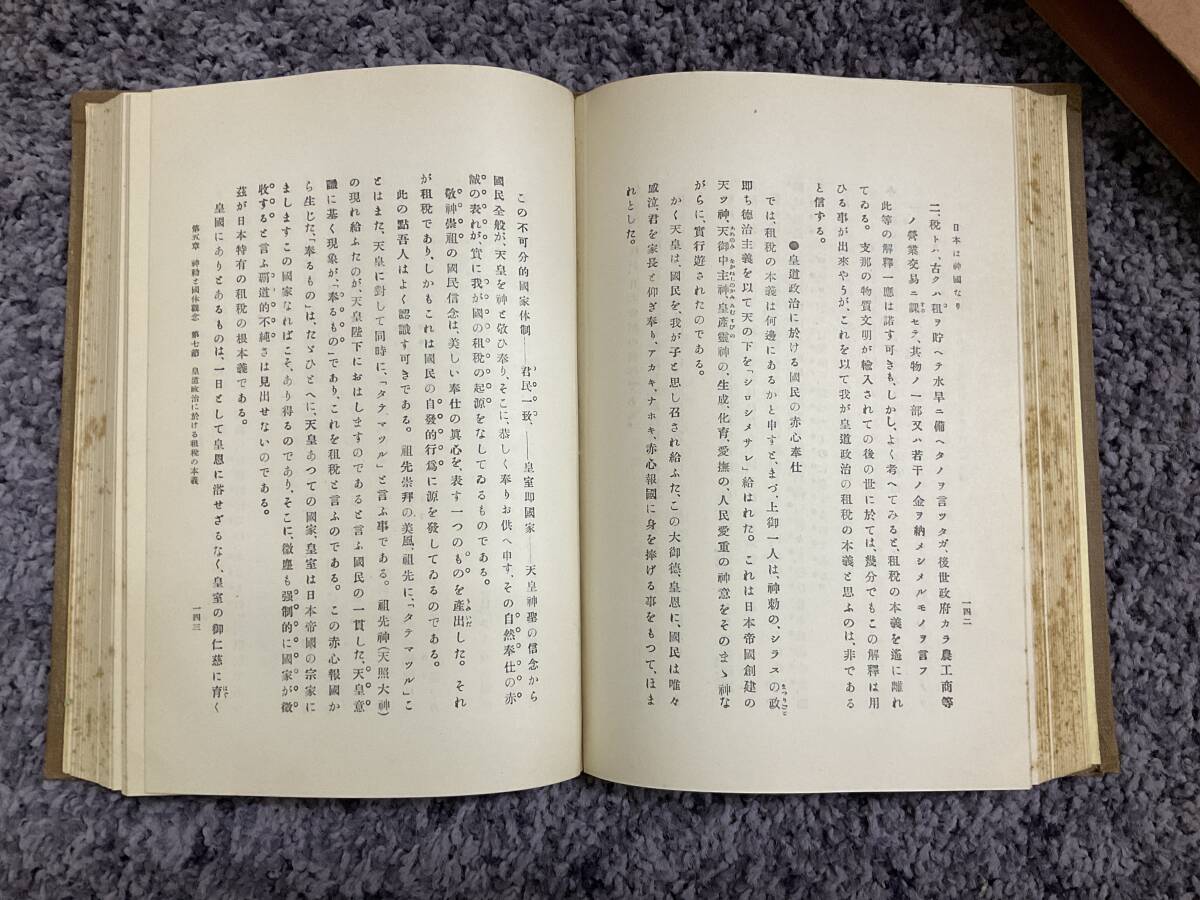 日本は神國なり
一四二
二、税トハ、古クハ租ヲ貯ヘテ水旱ニ備ヘタノヲ言ツタガ、後世政府カラ農工商等
ノ營業交易ニ課セラ、其物ノ一部又ハ若干ノ金ヲ納メシメルモノヲ言フ
此等の解釋一應は諾す可きも、しかし、よく考へてみると、租税の本義を遙に離れ
てゐる。支那の物質文明が輸入されての後の世に於ては、幾分でもこの解釋は用
ひる事が出來やうが、これを以て我が皇道政治の租税の本義と思ふのは、非である
と信ずる。
●皇道政治に於ける國民の赤心奉仕
では、租税の本義は何邊にあるかと申すと、まづ、上御一人は、神勅の、シラスの政
即ち德治主義を以て天の下を「シロシメサレ」給はれた。これは日本帝國創建の
天ツ神、天御中主神、皇產靈神の、生成、化育、愛撫の、人民愛重の神意をそのまゝ神な
がらに、實行遊されたのである。
かく天皇は、國民を、我が子と思し召され給ふた、この大御德、皇恩に、國民は唯々
感泣君を家長と仰ぎ奉り、アカキ、ナホキ、赤心報國に身を捧げる事をもつてほま
れとした。
この不可分的國家体制――君民一致、――皇室即國家――天皇神聖の信念から
國民全般が、天皇を神と敬ひ奉り、そこに、恭しく奉りお供へ申す、その自然奉仕の赤
誠の表れが、實に我が國の租税の起源をなしてゐるものである。
敬神崇祖の國民信念は、美しい奉仕の眞心を、表す一つのものを產出した。それ
が租税であり、しかもこれは國民の自發的行爲に源を發してゐるのである。
此の點吾人はよく認識す可きである。祖先崇拜の美風、祖先に、「タテマツル」こ
とはまた、天皇に對して同時に、「タテマツル」と言ふ事である。祖先神(天照大神)
の現れ給ふたのが、天皇陛下におはしますのであると言ふ國民の一貫した、天皇意
識に基く現象が、「奉るもの」であり、これを租税と言ふのである。この赤心報國か
ら生じた、「奉るもの」は、たゞひとへに、天皇あつての國家、皇室は日本帝國の宗家に
ましますこの國家なればこそ、あり得るのであり、そこに、微塵も强制的に國家が徵
收すると言ふ覇道的不純さは見出せないのである。
玆が日本特有の租税の根本義である。
皇國にありとあるものは、一日として皇恩に浴せざるなく、皇室の御仁慈に育く
第五章 神勅と國体觀念 第七節 皇道政治に於ける租税の本義
一四三